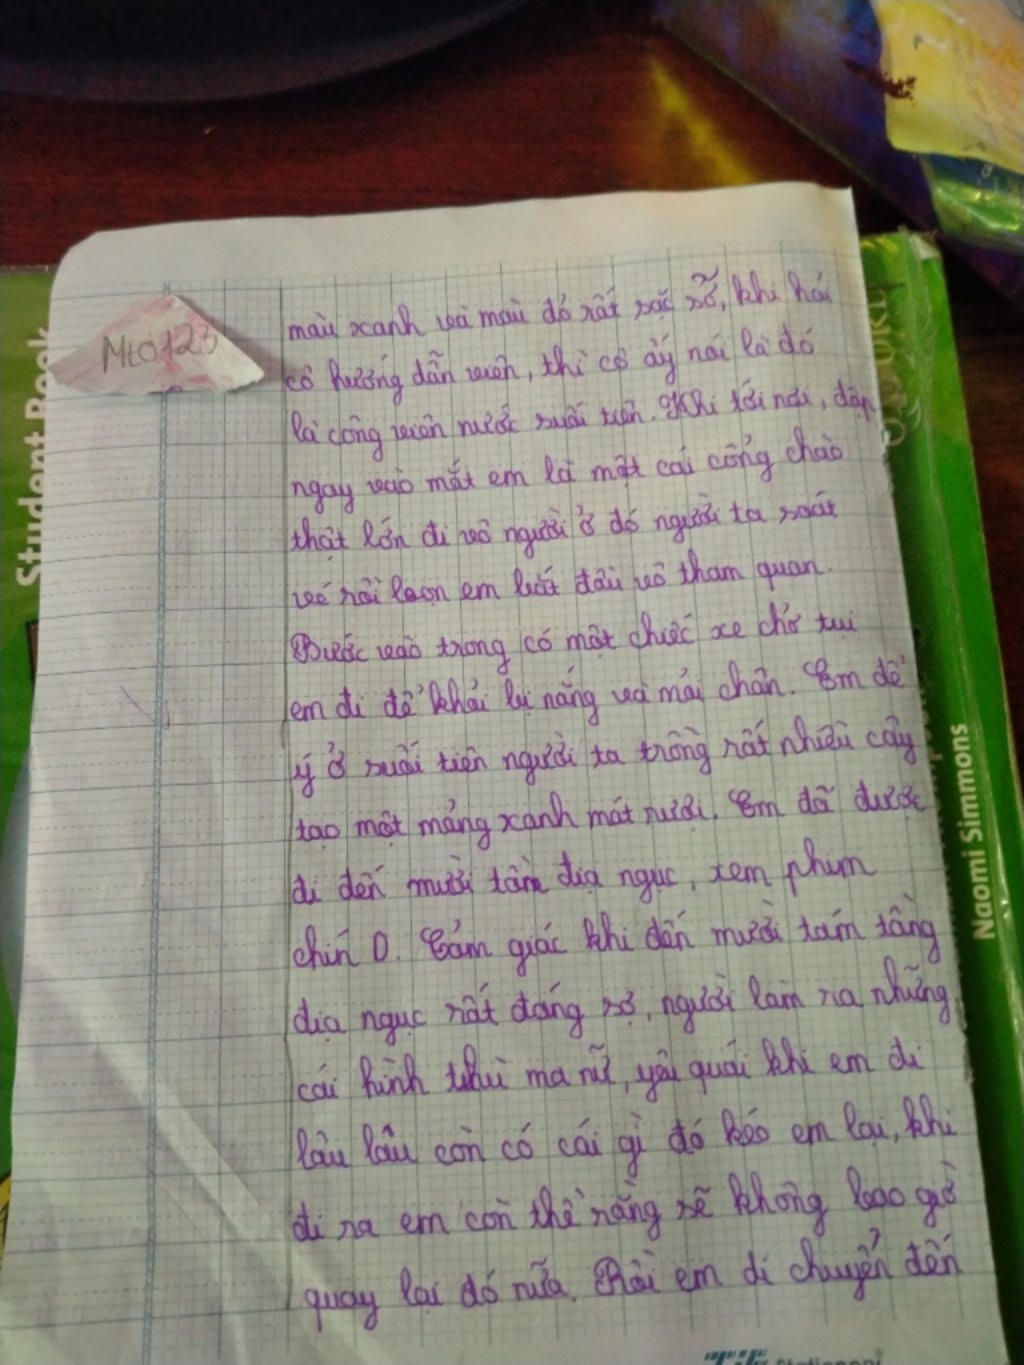 Student Book
Mt0123
màu xanh và màu đỏ rất sặc sỡ, khi hỏi
cô hướng dẫn viên, thì cô ấy nói là đó
là công viên nước suối tiên. Khi tới nơi, đập
ngay vào mắt em là một cái cổng chào
thật lớn đi vô người ở đó người ta soát
vé rồi bọn em bắt đầu vô tham quan.
Bước vào trong có một chiếc xe chở tụi
em đi để khỏi bị nắng và mỏi chân. Em để
ý ở suối tiên người ta trồng rất nhiều cây
tạo một mảng xanh mát rượi. Em đã được
đi đến mười tám địa ngục, xem phim
chín D. Cảm giác khi đến mười tám tầng
địa ngục rất đáng sợ, người làm ra những
cái hình thù ma nữ, yêu quái khi em đi
lâu lâu còn có cái gì đó kéo em lại, khi
đi ra em còn thề rằng sẽ không bao giờ
quay lại đó nữa. Rồi em di chuyển đến
Naomi Simmons